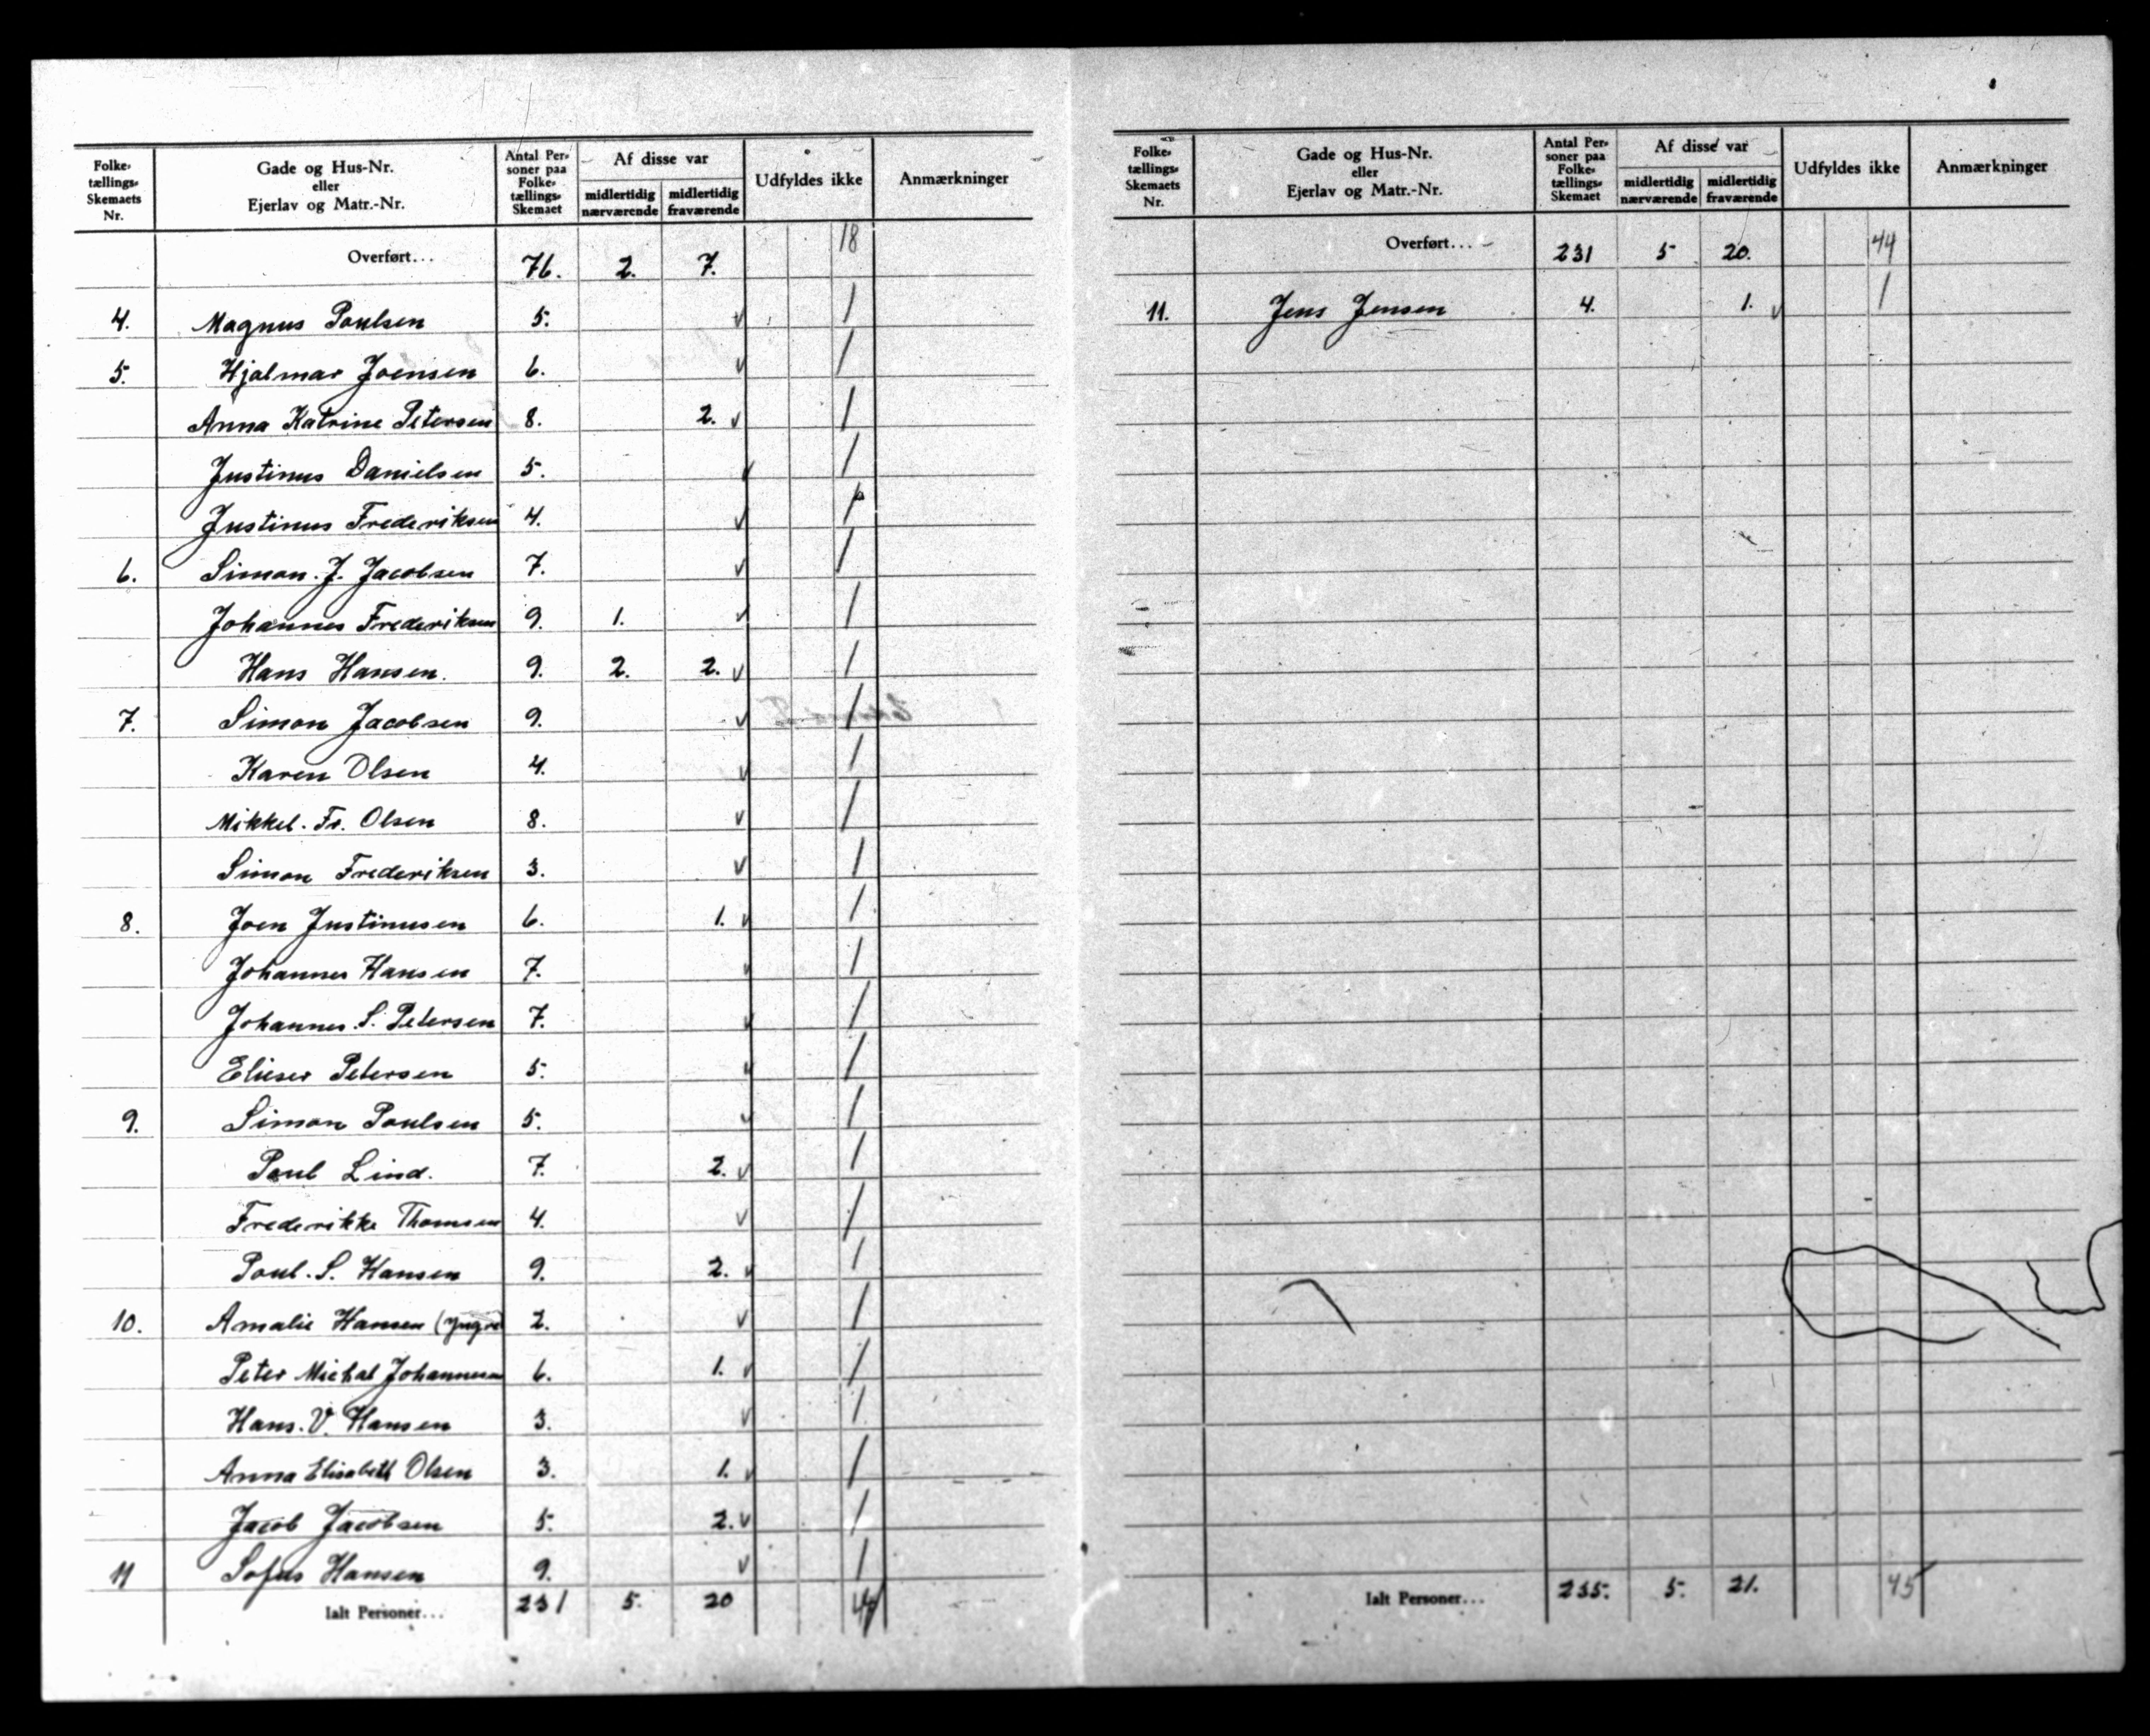 Folke-tællings-Skemaets Nr. | Gade og Hus-Nr. eller Ejerlav og Matr.-Nr. | Antal Personer paa Folke-tællings-Skemaet | Af disse var midlertidig nærværende | midlertidig fraværende | Udfyldes ikke | Anmærkninger
Overført... 76. 2. 7. 18
4. Magnus Poulsen 5. ✓ /
5. Hjalmar Joensen 6. ✓ /
Anna Katrine Petersen 8. 2. ✓ /
Justinus Danielsen 5. ✓ /
Justinus Frederiksen 4. ✓ /
6. Simon. J. Jacobsen 7. ✓ /
Johannes Frederiksen 9. 1. ✓ /
Hans Hansen. 9. 2. 2. ✓ /
7. Simon Jacobsen 9. ✓ /
Karen Olsen 4. ✓ /
Mikkel. Fr. Olsen 8. ✓ /
Simon Frederiksen 3. ✓ /
8. Joen Justinusen 6. 1. ✓ /
Johannes Hansen 7. ✓ /
Johannes. S. Petersen 7. ✓ /
Elieser Petersen 5. ✓ /
9. Simon Poulsen 5. ✓ /
Poul Lind. 7. 2. ✓ /
Frederikke Thomsen 4. ✓ /
Poul. S. Hansen 9. 2. ✓ /
10. Amalie Hansen (yngre 2. ✓ /
Peter Michal Johannesen 6. 1. ✓ /
Hans. V. Hansen 3. ✓ /
Anna Elisabeth Olsen 3. 1. ✓ /
Jacob Jacobsen 5. 2. ✓ /
11 Sofus Hansen 9. ✓ /
Ialt Personer... 231 5. 20 44
Folke-tællings-Skemaets Nr. | Gade og Hus-Nr. eller Ejerlav og Matr.-Nr. | Antal Personer paa Folke-tællings-Skemaet | Af disse var midlertidig nærværende | midlertidig fraværende | Udfyldes ikke | Anmærkninger
Overført... 231 5 20. 44
11. Jens Jensen 4. 1. ✓ /
Ialt Personer... 235. 5. 21. 45